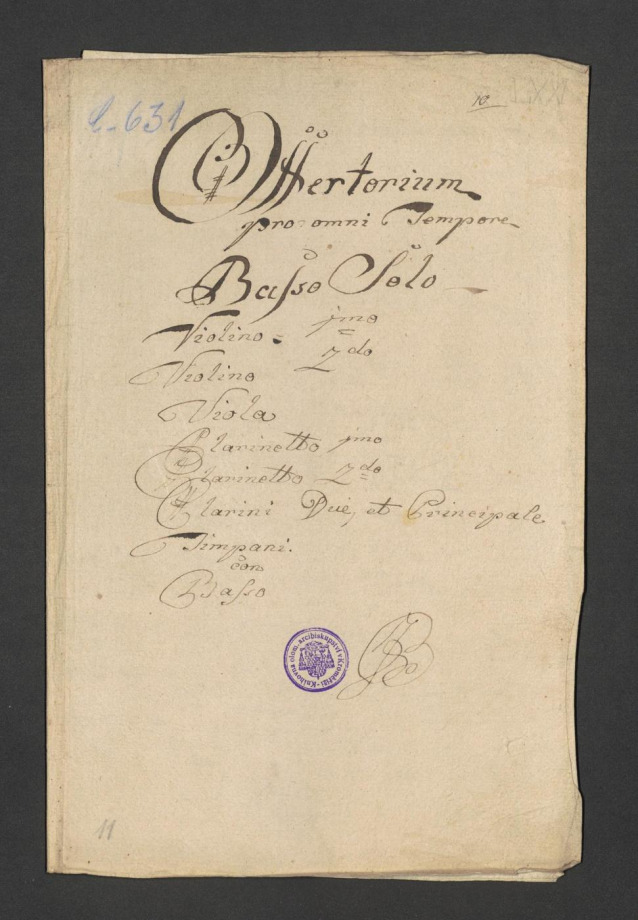 C-631
10.
Offertorium
pro omni Tempore
Basso Solo
Violino = jmo
Violino 2do
Viola
Clarinetto jmo
Clarinetto 2do
Clarini Due, et Principale
Timpani.
con
Basso
Knihovna olom. arcibiskupství v Kroměříži
11